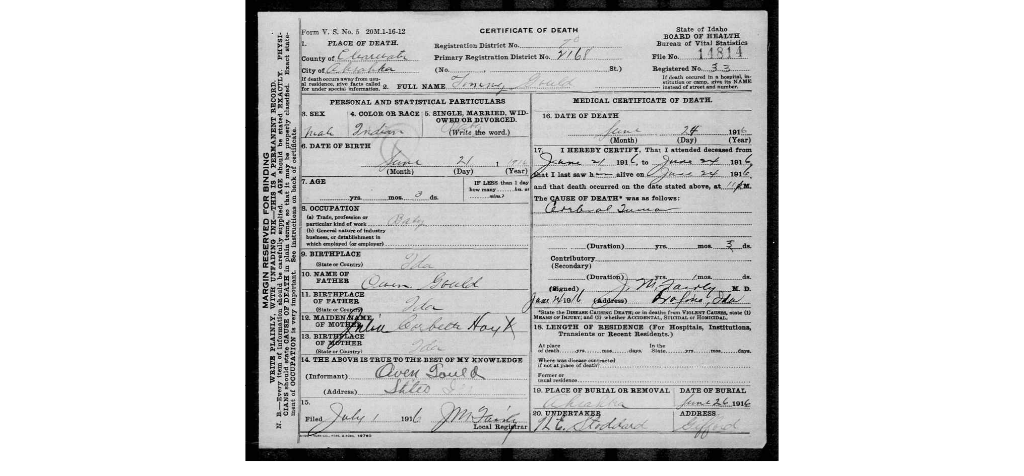 Form V. S. No. 5 20M.1-16-12
CERTIFICATE OF DEATH
State of Idaho
BOARD OF HEALTH
Bureau of Vital Statistics
1. PLACE OF DEATH.
County of
City of Ahsahka
If death occurs away from usual residence, give facts called for under special information.
Registration District No.
Primary Registration District No. 2168
(No. St.)
File No. 14814
Registered No. 33
If death occurred in a hospital, institution or camp, give its NAME instead of street and number.
2. FULL NAME Tommy Gould
PERSONAL AND STATISTICAL PARTICULARS
3. SEX
Male
4. COLOR OR RACE
Indian
5. SINGLE, MARRIED, WIDOWED OR DIVORCED.
(Write the word.)
6. DATE OF BIRTH
June 21 1916
(Month) (Day) (Year)
7. AGE
yrs. mos. 3 ds.
IF LESS than 1 day
how many hrs. or
mins.?
8. OCCUPATION
(a) Trade, profession or particular kind of work Baby
(b) General nature of industry business, or establishment in which employed (or employer)
9. BIRTHPLACE
(State or Country) Ida
10. NAME OF FATHER Owen Gould
11. BIRTHPLACE OF FATHER
(State or Country) Ida
12. MAIDEN NAME OF MOTHER Corbett
13. BIRTHPLACE OF MOTHER
(State or Country) Ida
14. THE ABOVE IS TRUE TO THE BEST OF MY KNOWLEDGE
(Informant) Owen Gould
(Address)
15.
Filed July 1 1916 J M Fairly
Local Registrar
MEDICAL CERTIFICATE OF DEATH.
16. DATE OF DEATH
June 24 1916
(Month) (Day) (Year)
17. I HEREBY CERTIFY, That I attended deceased from
June 21 1916, to June 24 1916
that I last saw him alive on June 24 1916,
and that death occurred on the date stated above, at M.
The CAUSE OF DEATH* was as follows:
(Duration) yrs. mos. 3 ds.
Contributory
(Secondary)
(Duration) yrs. mos. ds.
(Signed) J. M. Fairly M. D.
1916 (Address) Orofino, Ida
*State the DISEASE CAUSING DEATH; or in deaths from VIOLENT CAUSES, state (1) MEANS OF INJURY; and (2) whether ACCIDENTAL, SUICIDAL or HOMICIDAL.
18. LENGTH OF RESIDENCE (For Hospitals, Institutions, Transients or Recent Residents.)
At place of death yrs. mos. days. In the State yrs. mos. days.
Where was disease contracted if not at place of death?
Former or usual residence
19. PLACE OF BURIAL OR REMOVAL
Ahsahka
DATE OF BURIAL
June 26 1916
20. UNDERTAKER
Stoddard
ADDRESS
Gifford
MARGIN RESERVED FOR BINDING
WRITE PLAINLY, WITH UNFADING INK—THIS IS A PERMANENT RECORD.
N. B.—Every item of information should be carefully supplied. AGE should be stated EXACTLY. PHYSICIANS should state CAUSE OF DEATH in plain terms, so that it may be properly classified. Exact statement of OCCUPATION is very important. See instructions on back of certificate.